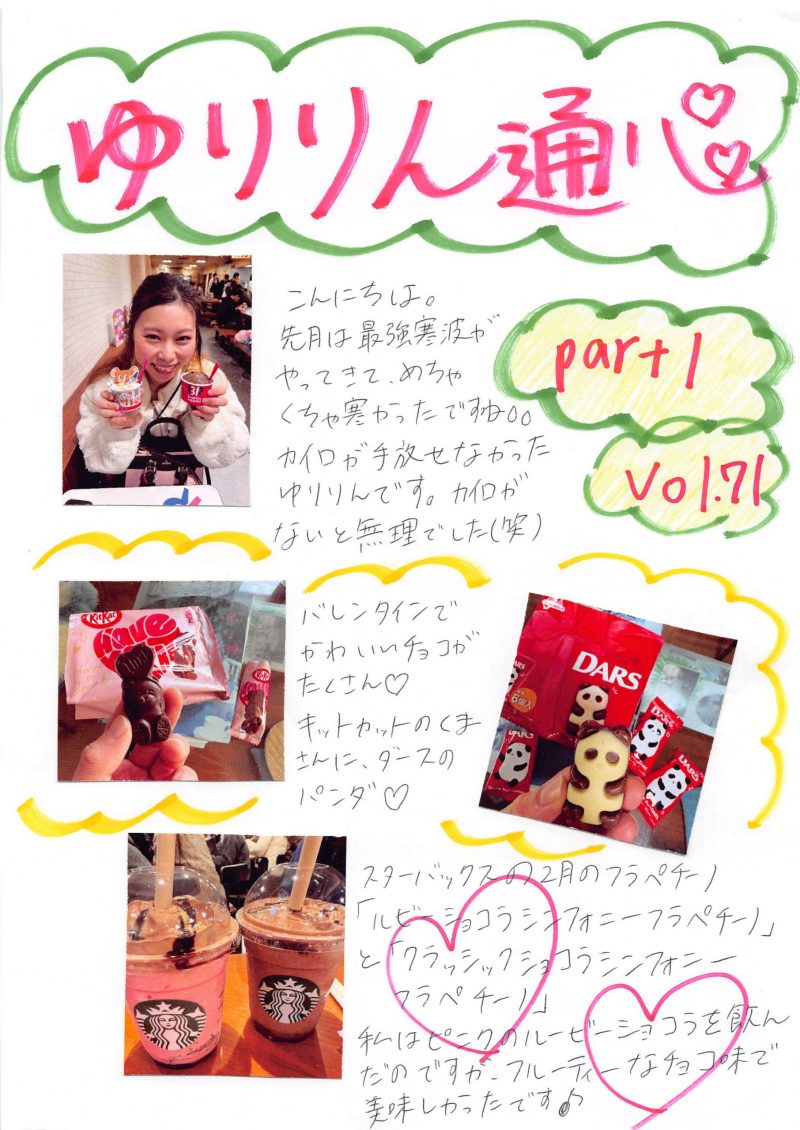 ゆりりん通心♡♡
part 1
vol.71
こんにちは。
先月は最強寒波が
やってきて、めちゃ
くちゃ寒かったですね。。
カイロが手放せなかった
ゆりりんです。カイロが
ないと無理でした(笑)
バレンタインで
かわいいチョコが
たくさん♡
キットカットのくま
さんに、ダースの
パンダ♡
KitKat
Have
DARS
6個入
DARS
DARS
DARS
スターバックスの2月のフラペチーノ
「ルビーショコラシンフォニーフラペチーノ」
と「クラッシックショコラシンフォニー
フラペチーノ」
私はピンクのルービーショコラを飲ん
だのですが、フルーティーなチョコ味で
美味しかったです♪